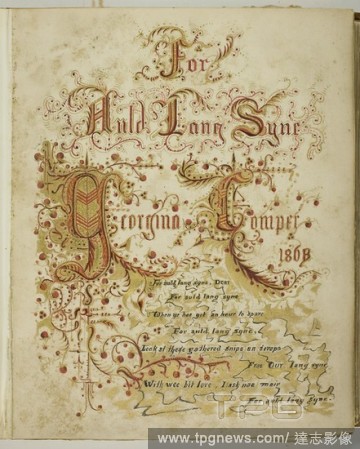 For
Auld Lang Syne
Georgina Cowper
1868
For auld lang syne, Dear
For auld lang syne
When ye hae yet an hour to spare
For auld lang syne.
Look at these gathered snips an scraps
Frae Our lang syne
With wee bit love, I ask nae mair
For auld lang syne.
TPG
www.tpgnews.com/ 達志影像